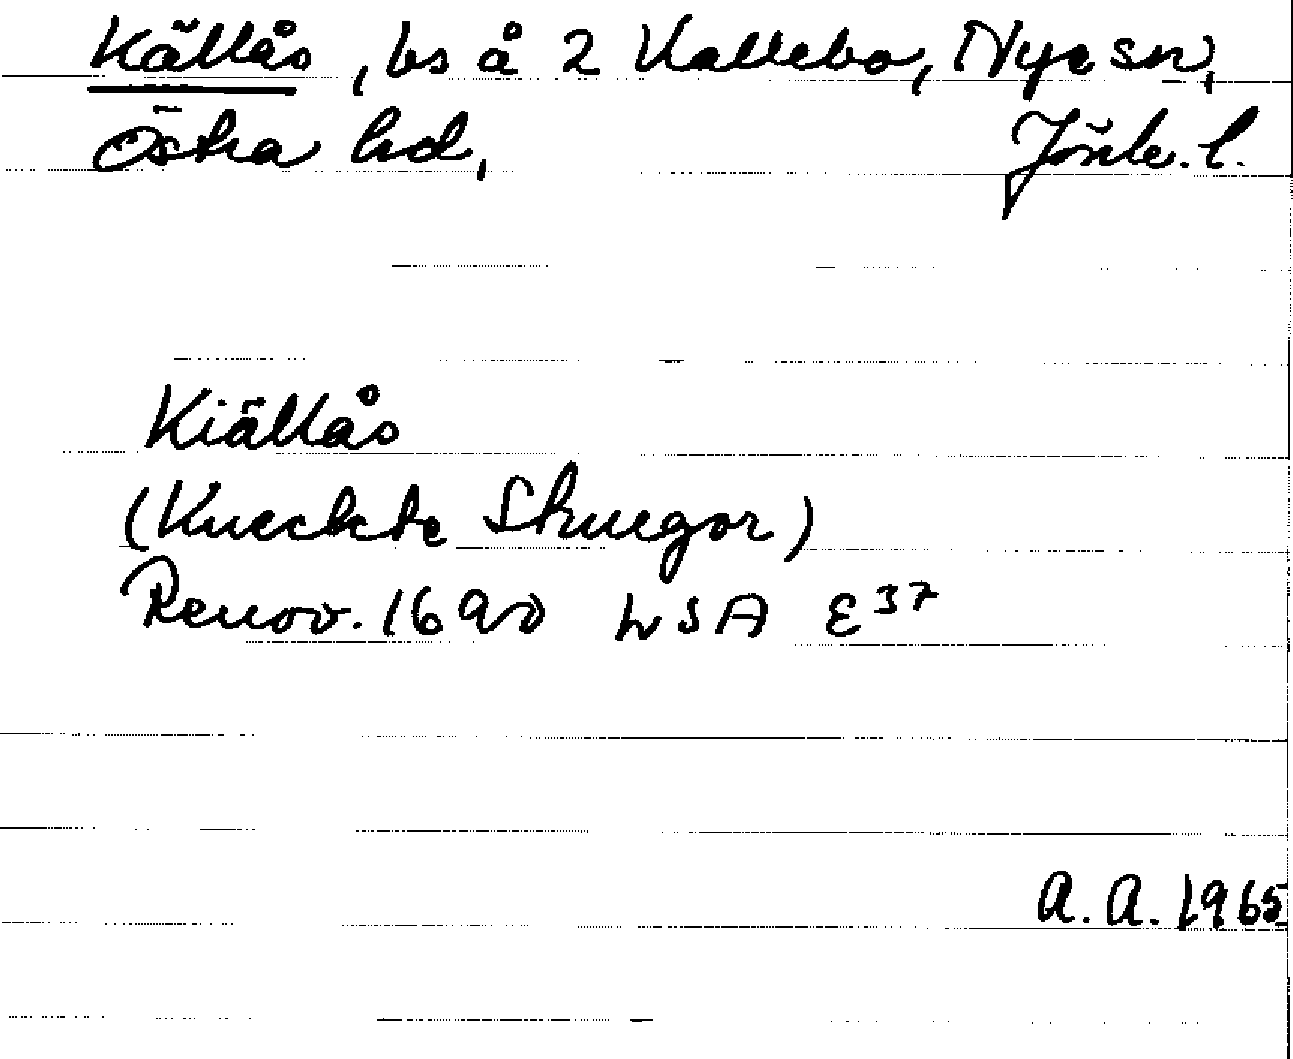 Källås, bs å 2 Kallebo, Nye sn,
Östra hd, Jönk. l.
Kiällås
(Kneckte Skuegor)
Renov. 1690 LSA E37
A. A. 1965